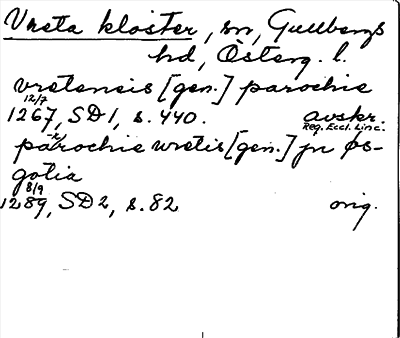 Vreta kloster, sn, Gullbergs
hd, Österg. l.
vretensis [gen.] parochie
12/7
1267, SD1, s. 440. avskr.
Reg. Eccl. Linc.
parochie wretis [gen.] jn øs-
gotia
8/9
1289, SD2, s. 82 orig.